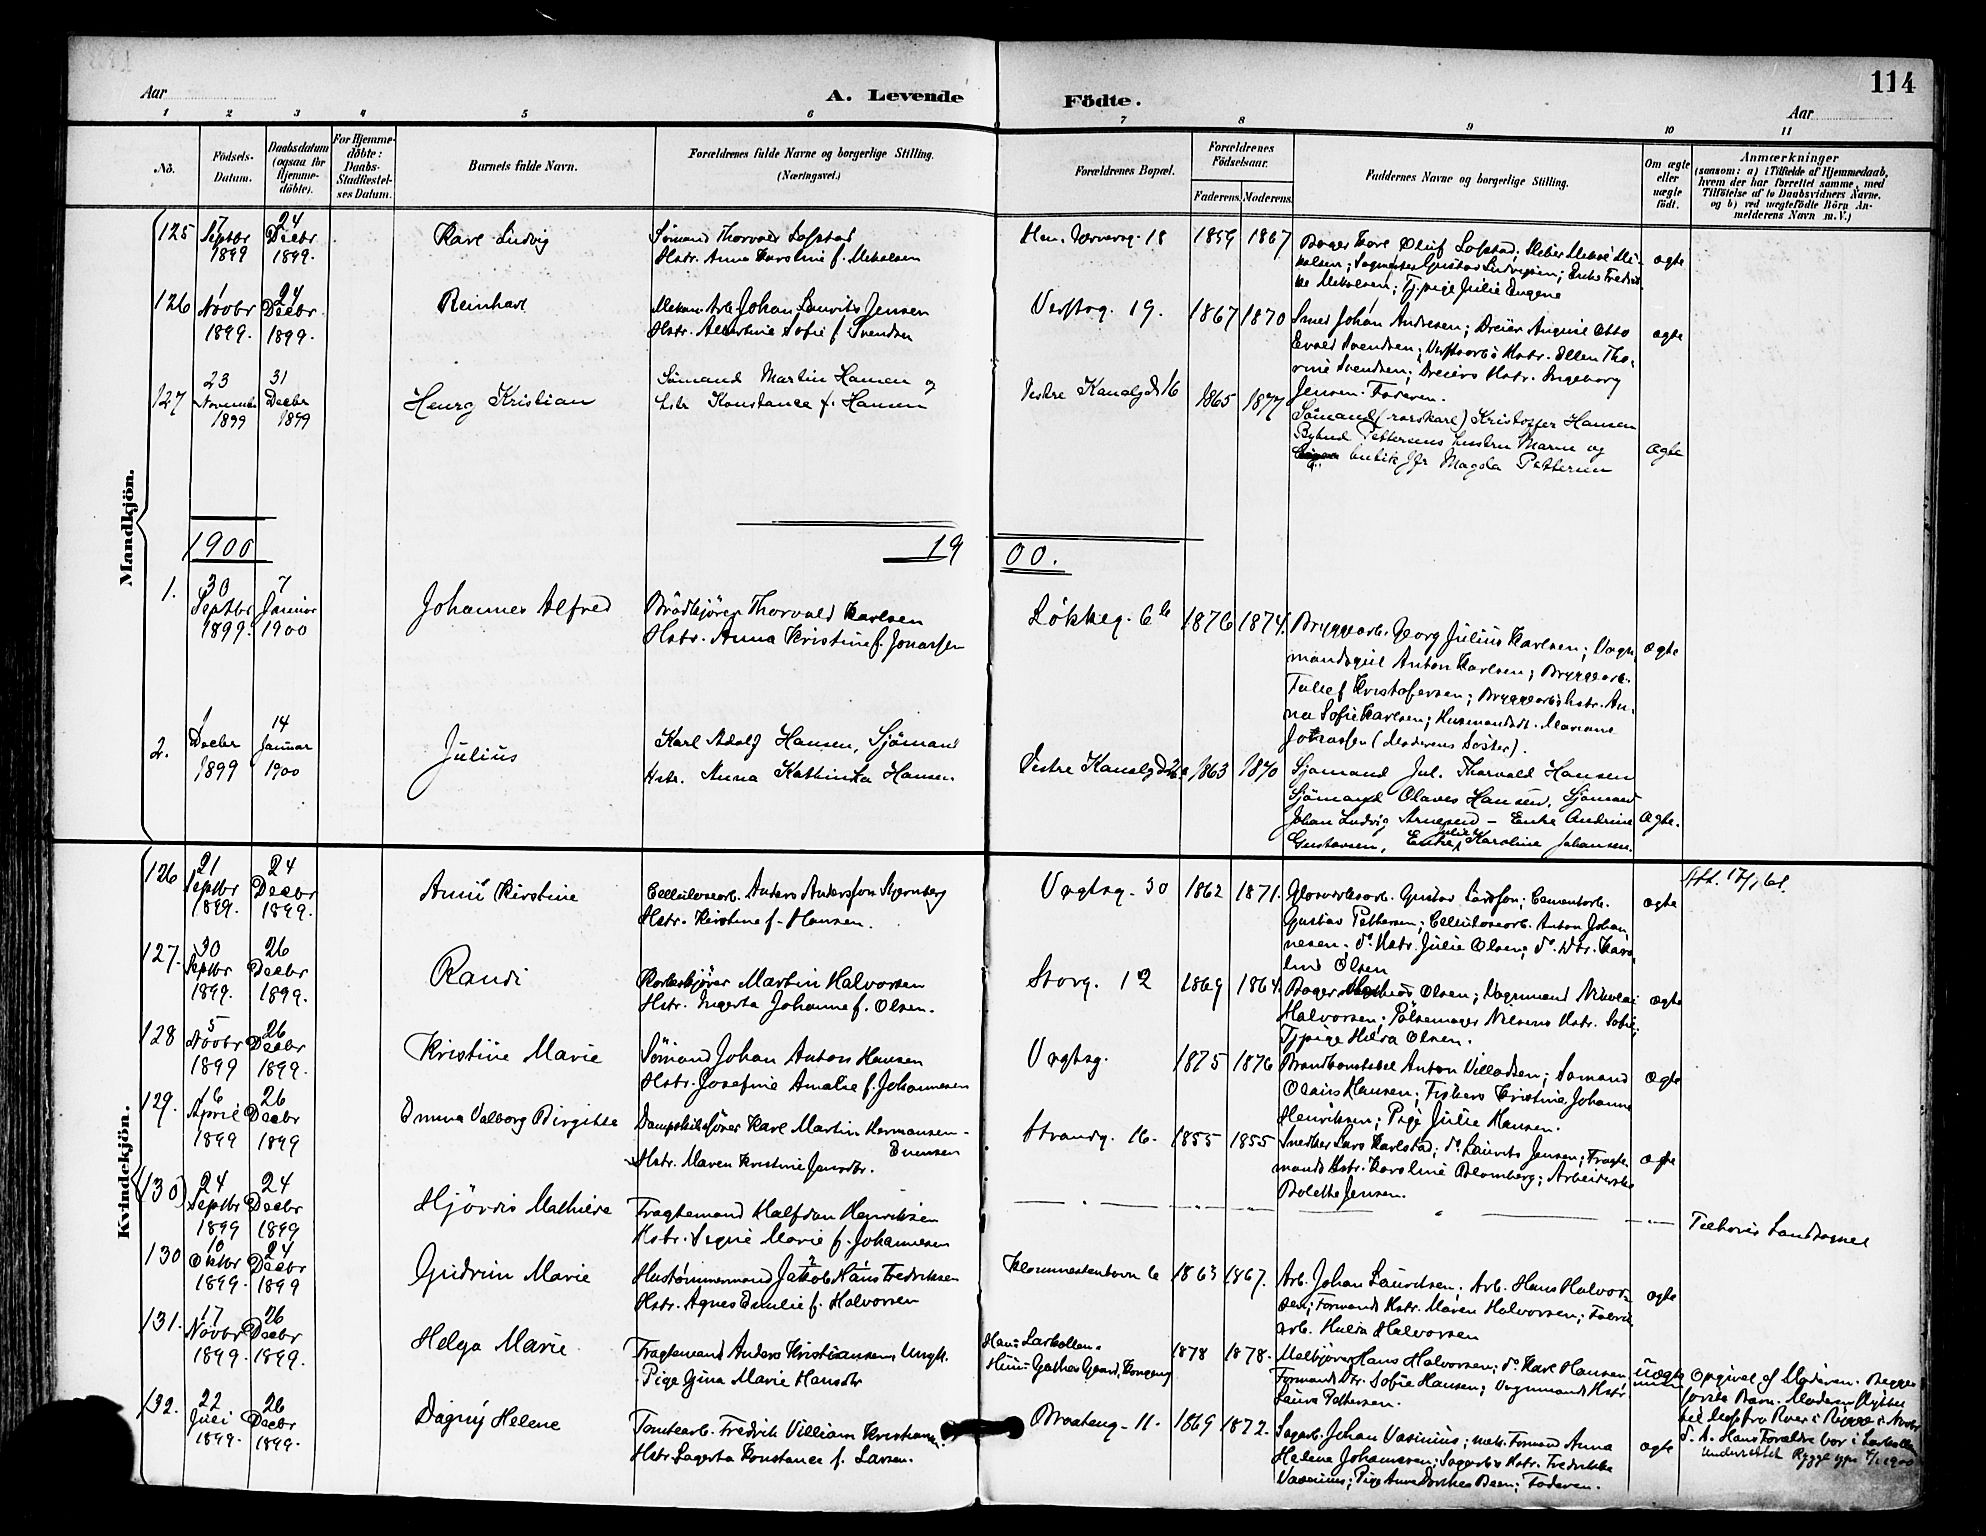 114
Aar
A. Levende Födte.
Aar
1 2 3 4 5 6 7 8 9 10 11
No.
Födsels-Datum.
Daabsdatum (ogsaa for Hjemmedöbte).
For Hjemmedöbte: Daabs-Stadfæstelses Datum.
Barnets fulde Navn.
Forældrenes fulde Navne og borgerlige Stilling. (Næringsvei.)
Forældrenes Bopæl.
Forældrenes Födselsaar.
Faderens. Moderens.
Faddernes Navne og borgerlige Stilling.
Om ægte eller uægte födt.
Anmærkninger
(saasom: a) i Tilfælde af Hjemmedaab, hvem der har forrettet samme, med Tilföielse af to Daabsvidners Navne, og b) ved uægtefödte Börn Anmelderens Navn m. V.)
Mandkjön.
125 7 Septbr 1899 24 Decbr 1899. Karl Ludvig
Sømand Thorvald Lofstad
Hstr. Anna Karoline f. Mikalsen
18 1859 1867
Bager Karl Oluf Lofstad;
Gustav Ludvigsen; Enke Fredrik-
ke Mikalsen; Tj.pige Julie Eugene
ægte
126 1 Novbr 1899. 24 Decbr 1899. Reinhart
Mekan. Arb. Johan Lauritz Jensen
Hstr. Albertine Sofie f. Svendsen
Verftsg. 19. 1867 1870
Smed Johan Andresen; Dreier August Otto
Evald Svendsen; Verftsarb's Hstr. Ellen Tho-
rine Svendsen; Dreiers Hstr. Ingeborg
Jensen. Faderen.
ægte
127 23 November 1899 31 Decbr 1899 Henry Kristian
Sömand Martin Hansen og
Hstr Konstance f. Hansen
Vestre Kanalgd 16 1865 1877
Sömand Kristoffer Hansen
Bybud Pettersens hustru Marie og
butik jfr Magda Pettersen
Ægte
1900 1900.
1. 30 Septbr 1899. 7 Januar 1900 Johannes Alfred
Brödkjörer Thorvald Karlsen
Hstr. Anna Kristine f. Jonassen
Løkkeg. 6 b 1876 1874.
Bryggearb. Georg Julius Karlsen; Vogn-
mandsgut Anton Karlsen; Bryggearb.
Tallef Kristofersen; Bryggearb's Hstr. An-
na Sofie Karlsen; Husmandsdt. Mariane
Jonassen (Moderens Søster).
Ægte
2. 1 Decbr 1899 14 Januar 1900 Julius
Karl Adolf Hansen, Sjömand
Hstr. Anna Kathinka Hansen
Vestre Kanalgd 1863 1870
Sjömand Jul. Thorvald Hansen
Sjömand Olaves Hansen, Sjömand
Johan Ludvig Arnesen - Enke Andrine
Gustavsen, Enke Julie Karoline Johansen.
Ægte.
Kvindekjön.
126 21 Septbr 1899. 24 Decbr 1899. Anni Kirstine
Cellulosearb. Anders Andersson Stjernberg
Hstr. Kirstine f. Hansen.
Vogtsg. 30 1862 1871.
Glasværksarb. Gustav Larsson; Cementarb.
Gustav Pettersen; Cellulosearb. Anton Johan
nesen. do. Hstr. Julie Olsen; do. Dtr. Karo-
line Olsen
ægte
Att. 17/1 61.
127. 30 Septbr 1899. 26 Decbr 1899. Randi
Martin Halvorsen
Hstr. Ingerta Johanne f. Olsen.
Storg. 12 1869 1864.
Bager Olsen; Vognmand Nikolai
Halvorsen; Pølsemager Nilsens Hstr. Sofie;
Tjpige Hilda Olsen.
ægte
128 5 Novbr 1899 26 Decbr 1899. Kristine Marie
Sømand Johan Anton Hansen
Hstr. Josefine Amalie f. Johannesen
Vogtsg. 1875 1876
Brandkonstabel Anton Villadsen; Sømand
Olaus Hansen; Fiskers Kristine Johanne
Henriksen; Pige Julie Hansen.
ægte
129. 16 April 1899 26 Decbr 1899 Emma Valborg Birgitte
Dampskibsfører Karl Martin Hermansen-
Evensen
Hstr. Maren Kristine Jansdtr.
Strandg. 16. 1855 1855
Snedker Lars Karlstad; do. Laurits Jensen; Fragte-
mands Hstr. Karoline Blomberg; Arbeiderske
Bolette Jensen.
ægte
(130) 24 Septbr 1899 24 Decbr 1899 Hjördis Mathilde
Fragtemand Halfdan Henriksen
Hstr. Signe Marie f. Johannesen
Tilhører Landsognet
130 10 Oktbr 1899. 24 Decbr 1899 Gudrun Marie
Hustømmermand Jakob Hans Fredriksen
Hstr. Agnes Emilie f. Halvorsen
6 1863 1867.
Arb. Johan Lauritsen; Arb. Hans Halvor-
sen; Formands Hstr. Maren Halvorsen; Fabrik-
arb. Hulda Halvorsen
ægte
131. 17 Novbr 1899. 26 Decbr 1899. Helga Marie
Fragtemand Anders Kristiansen, Ungk.
Pige Gina Marie Hansdtr
Han: Larkollen.
Hun: 1878 1878.
Hans Halvorsen; do. Karl Hansen;
Formands Dtr. Sofie Hansen; Vognmands Hstr.
Laura Pettersen.
Uægte
Opgivet af Moderen. Begges
første Barn. Moderen flyttet
1900
132. 22 Juli 1899. 26 Decbr 1899. Dagny Helene
Tomtearb. Fredrik Villiam Kristiansen.
Hstr. Lagerta Konstance f. Larsen.
Braateng. 11. 1869 1872.
Sagarb. Johan Vasinius; mek. Formand Anna
Helene Johannesen; Sagarb's Hstr. Fredrikke
Vasinius; Pige Anne Dorthea Been; Faderen.
ægte